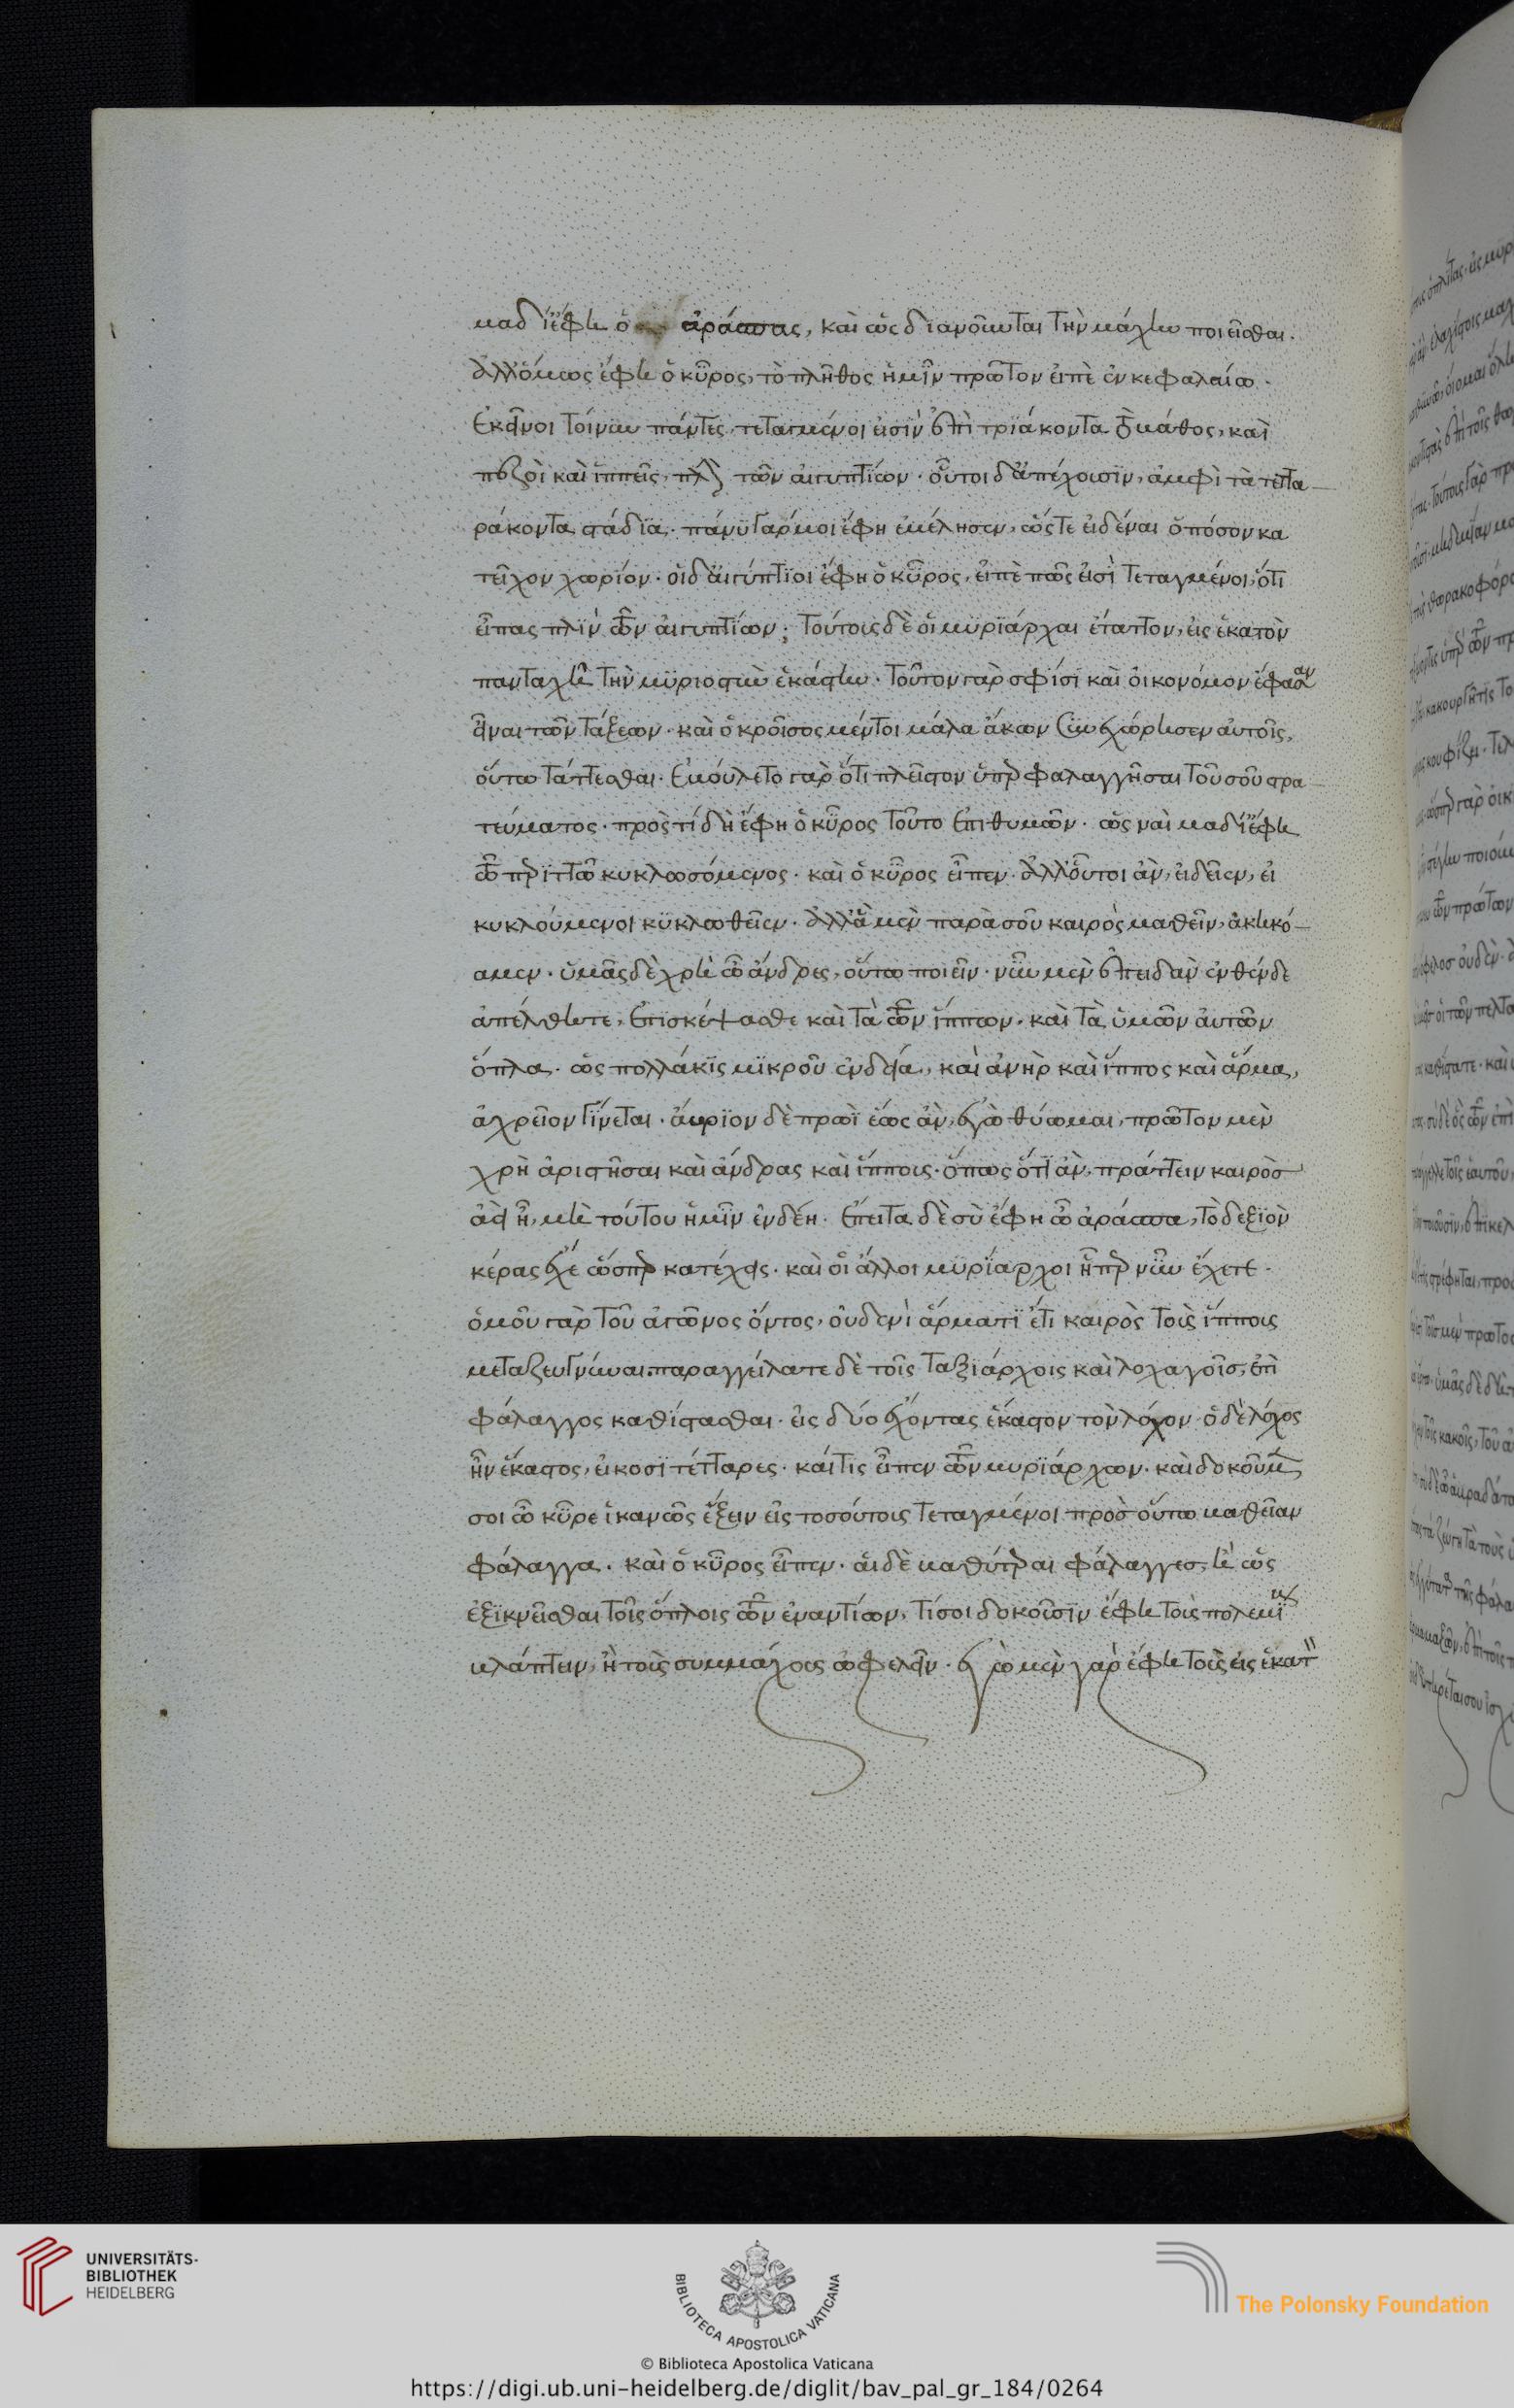 μαδίἔφη ὁ ἀράσπας, καὶ ὡς διανοῦνται τὴν μάχην ποιεῖσθαι.
ἀλλ' ὅμως ἔφη ὁ κῦρος, τὸ πλῆθος ἡμῖν πρῶτον εἰπὲ ἐν κεφαλαίω.
Ἐκεῖνοι τοίνυν πάντες τεταγμένοι εἰσὶν ἐπὶ τριάκοντα τὸ βάθος, καὶ
πεζοὶ καὶ ἱππεῖς, πλὴν τῶν αἰγυπτίων. οὗτοι δ' ἀπέχουσιν, ἀμφὶ τὰ τέττα
ράκοντα στάδια. πάνυ γάρ μοι ἔφη ἐμέλησεν, ὥς τε εἰδέναι ὁπόσον κα
τεῖχον χωρίον. οἱ δ' αἰγύπτιοι ἔφη ὁ κῦρος, εἰπὲ πῶς εἰσὶ τεταγμένοι, ὅτι
εἶπας πλὴν τῶν αἰγυπτίων; τούτοις δὲ οἱ μυρίαρχαι ἔταττον, εἰς ἑκατὸν
πανταχῆ τὴν μυριοστὺν ἑκάστην. τοῦτον γὰρ σφίσι καὶ οἰκονόμον ἔφασαν
εἶναι τῶν τάξεων. καὶ ὁ κροῖσος μέντοι μάλα ἄκων συνεχώρησεν αὐτοῖς,
οὕτω τάττεσθαι. Ἐβούλετο γὰρ ὅτι πλεῖστον ὑπερφαλαγγῆσαι τοῦ σοῦ στρα
τεύματος. πρὸς τί δὴ ἔφη ὁ κῦρος τοῦτο ἐπιθυμῶν. ὡς ναὶ μαδίἔφη
τῶ περιττῶ κυκλωσόμενος. καὶ ὁ κῦρος εἶπεν. ἀλλ' οὗτοι ἀν, εἰδεῖεν, εἰ
κυκλούμενοι κυκλωθεῖεν. ἀλλ' ἃ μὲν παρὰ σοῦ καιρὸς μαθεῖν, ἀκηκό
αμεν. ὑμᾶς δὲ χρὴ ὦ ἄνδρες, οὕτω ποιεῖν. νῦν μὲν ἐπειδὰν ἐνθένδε
ἀπέλθητε, ἐπισκέψασθε καὶ τὰ τῶν ἵππων, καὶ τὰ ὑμῶν αὐτῶν
ὅπλα. ὡς πολλάκις μικροῦ ἐνδεία, καὶ ἀνὴρ καὶ ἵππος καὶ ἅρμα,
ἀχρεῖον γίνεται. ἄυριον δὲ πρωῒ ἕως ἀν, ἐγὼ θύωμαι, πρῶτον μὲν
χρὴ ἀριστῆσαι καὶ ἄνδρας καὶ ἵππους. ὅπως ὅτι ἀν, πράττειν καιρὸς
ἀεὶ ἦ, μὴ τούτου ἡμῖν ἐνδέη. Ἔπειτα δὲ σὺ ἔφη ὦ ἀράσπα, τὸ δεξιὸν
κέρας ἔχε ὥσπερ κατέχεις. καὶ οἱ ἄλλοι μυρίαρχοι ἧπερ νῦν ἔχετε.
ὁμοῦ γὰρ τοῦ ἀγῶνος ὄντος, οὐδενὶ ἅρματι ἔτι καιρὸς τοῖς ἵπποις
μεταζευγνύναι. παραγγείλατε δὲ τοῖς ταξιάρχοις καὶ λοχαγοῖς, ἐπὶ
φάλαγγος καθίστασθαι. εἰς δύο ἔχοντας ἕκαστον τὸν λόχον. ὁ δὲ λόχος
ἦν ἕκαστος, εἰκοσι τέτταρες. καί τις εἶπεν τῶν μυριάρχων. καὶ δοκοῦμεν
σοι ὦ κῦρε ἱκανῶς ἕξειν εἰς τοσούτοις τεταγμένοι πρὸς οὕτω βαθεῖαν
φάλαγγα. καὶ ὁ κῦρος εἶπεν. αἱ δὲ βαθύτεραι φάλαγγες, ἢ ὡς
ἐξικνεῖσθαι τοῖς ὅπλοις τῶν ἐναντίων, τί σοι δοκοῦσιν ἔφη τοὺς πολεμίους
βλάπτειν, ἢ τοὺς συμμάχους ὠφελεῖν. ἐγὼ μὲν γὰρ ἔφη τοὺς εἰς ἑκατ
UNIVERSITÄTS-
BIBLIOTHEK
HEIDELBERG
BIBLIOTECA APOSTOLICA VATICANA
The Polonsky Foundation
© Biblioteca Apostolica Vaticana
https://digi.ub.uni-heidelberg.de/diglit/bav_pal_gr_184/0264